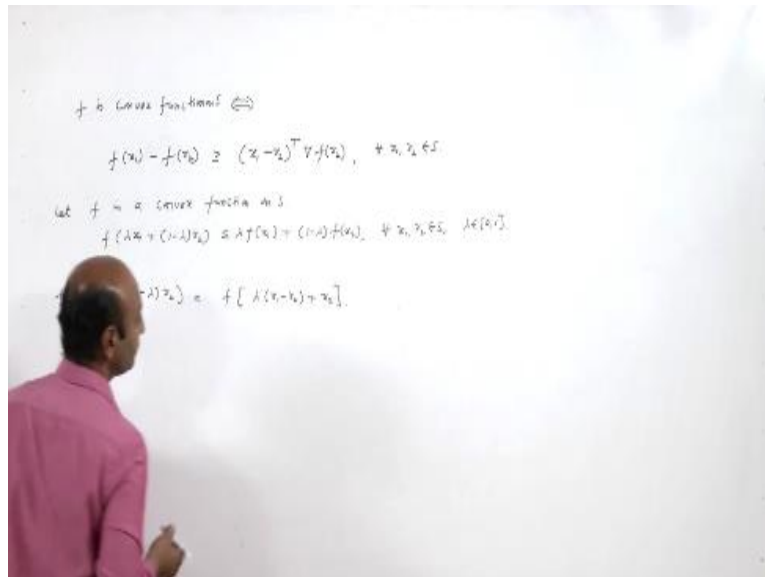 f is convex function S ⟺
f(x₁) - f(x₂) ≥ (x₁-x₂)ᵀ ∇f(x₂), ∀ x₁, x₂ ∈ S.
Let f is a convex function on S
f(λx₁ + (1-λ)x₂) ≤ λf(x₁) + (1-λ)f(x₂), ∀ x₁, x₂ ∈ S, λ ∈ [0,1].
-λ)x₂) = f[λ(x₁-x₂) + x₂].